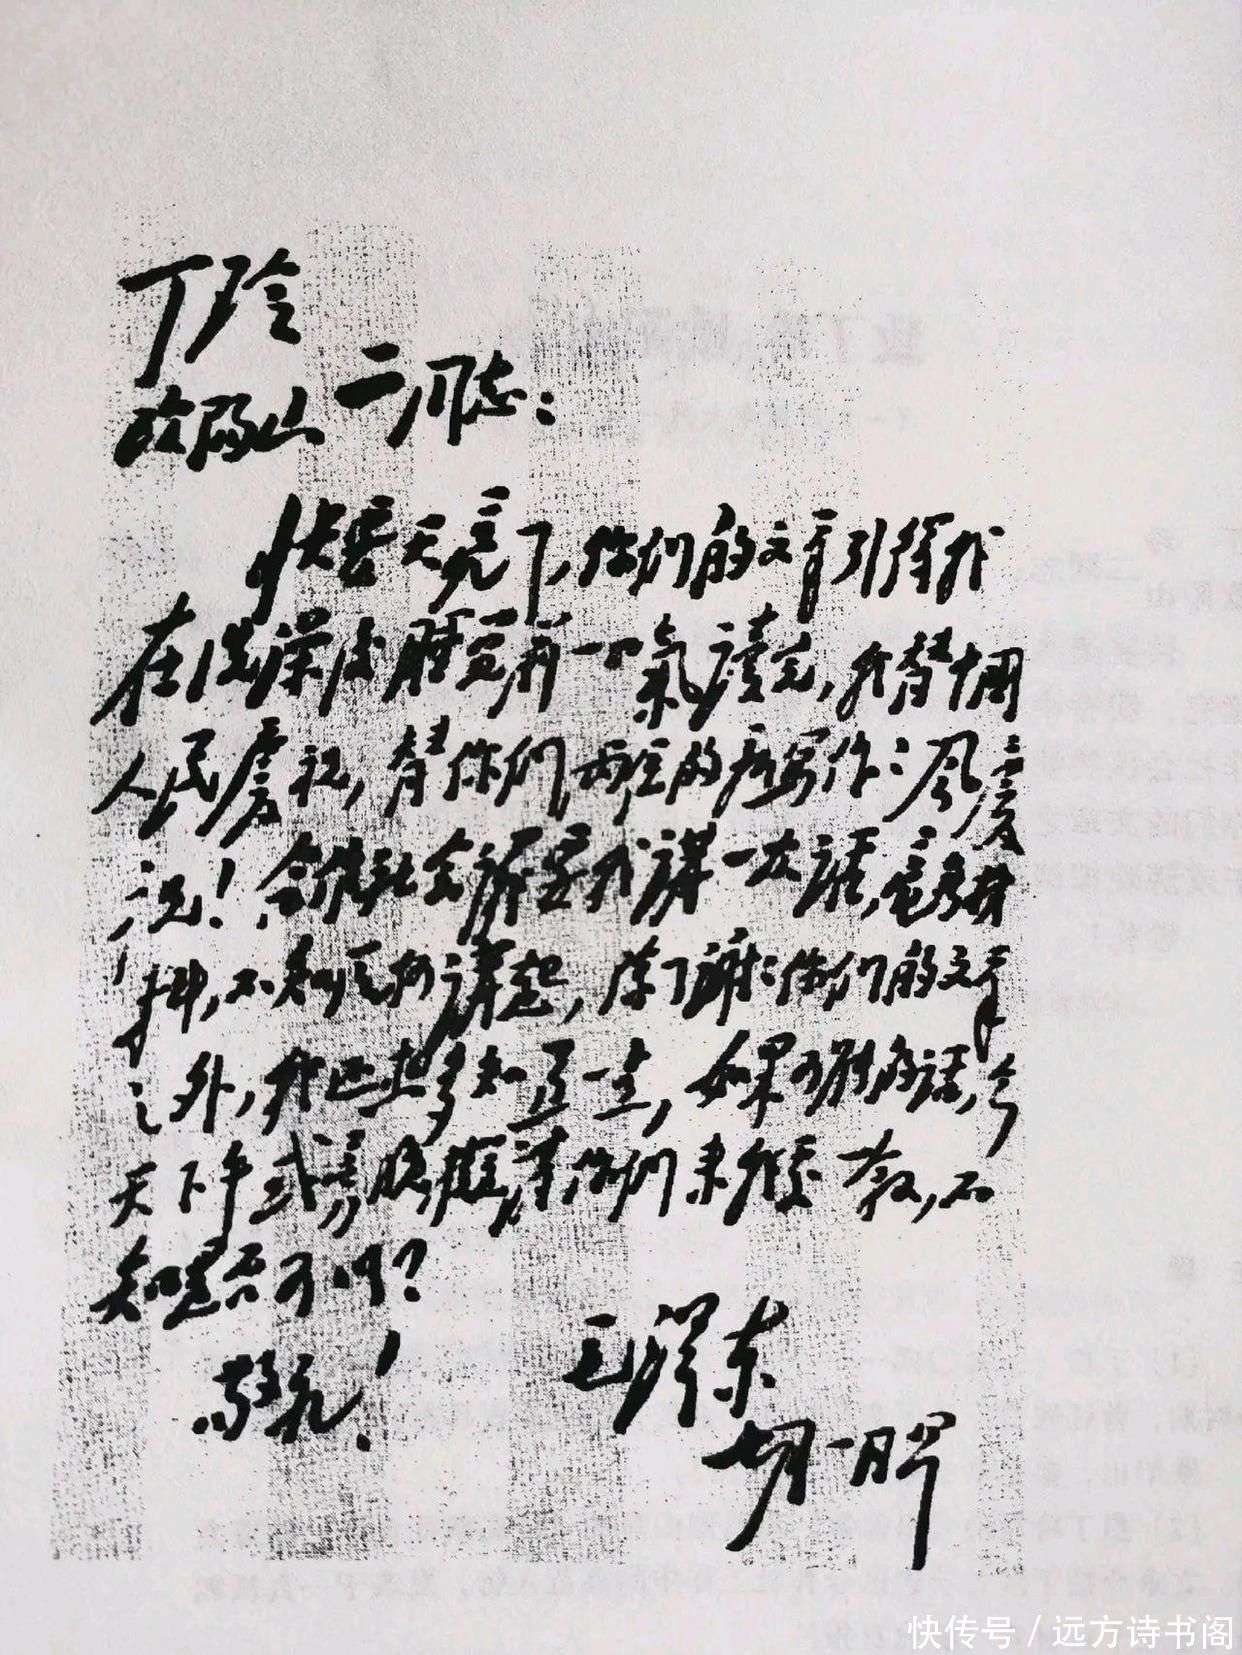 丁玲
欧陽山 二同志：
快要天亮了，你们的文章引得我
在洗澡后睡觉前一口氣讀完，我替中国
人民慶祝，替你们两位的新写作作风慶
祝！合作社会議要我講一次話，毫无材
料，不知从何講起，除了謝谢你们的文章
之外，我还想多知道一点，如果可能的話，今
天下午或傍晚拟请你们来我处一叙，不
知是否可以？
敬礼！
毛澤东
七月一日早
快传号 / 远方诗书阁